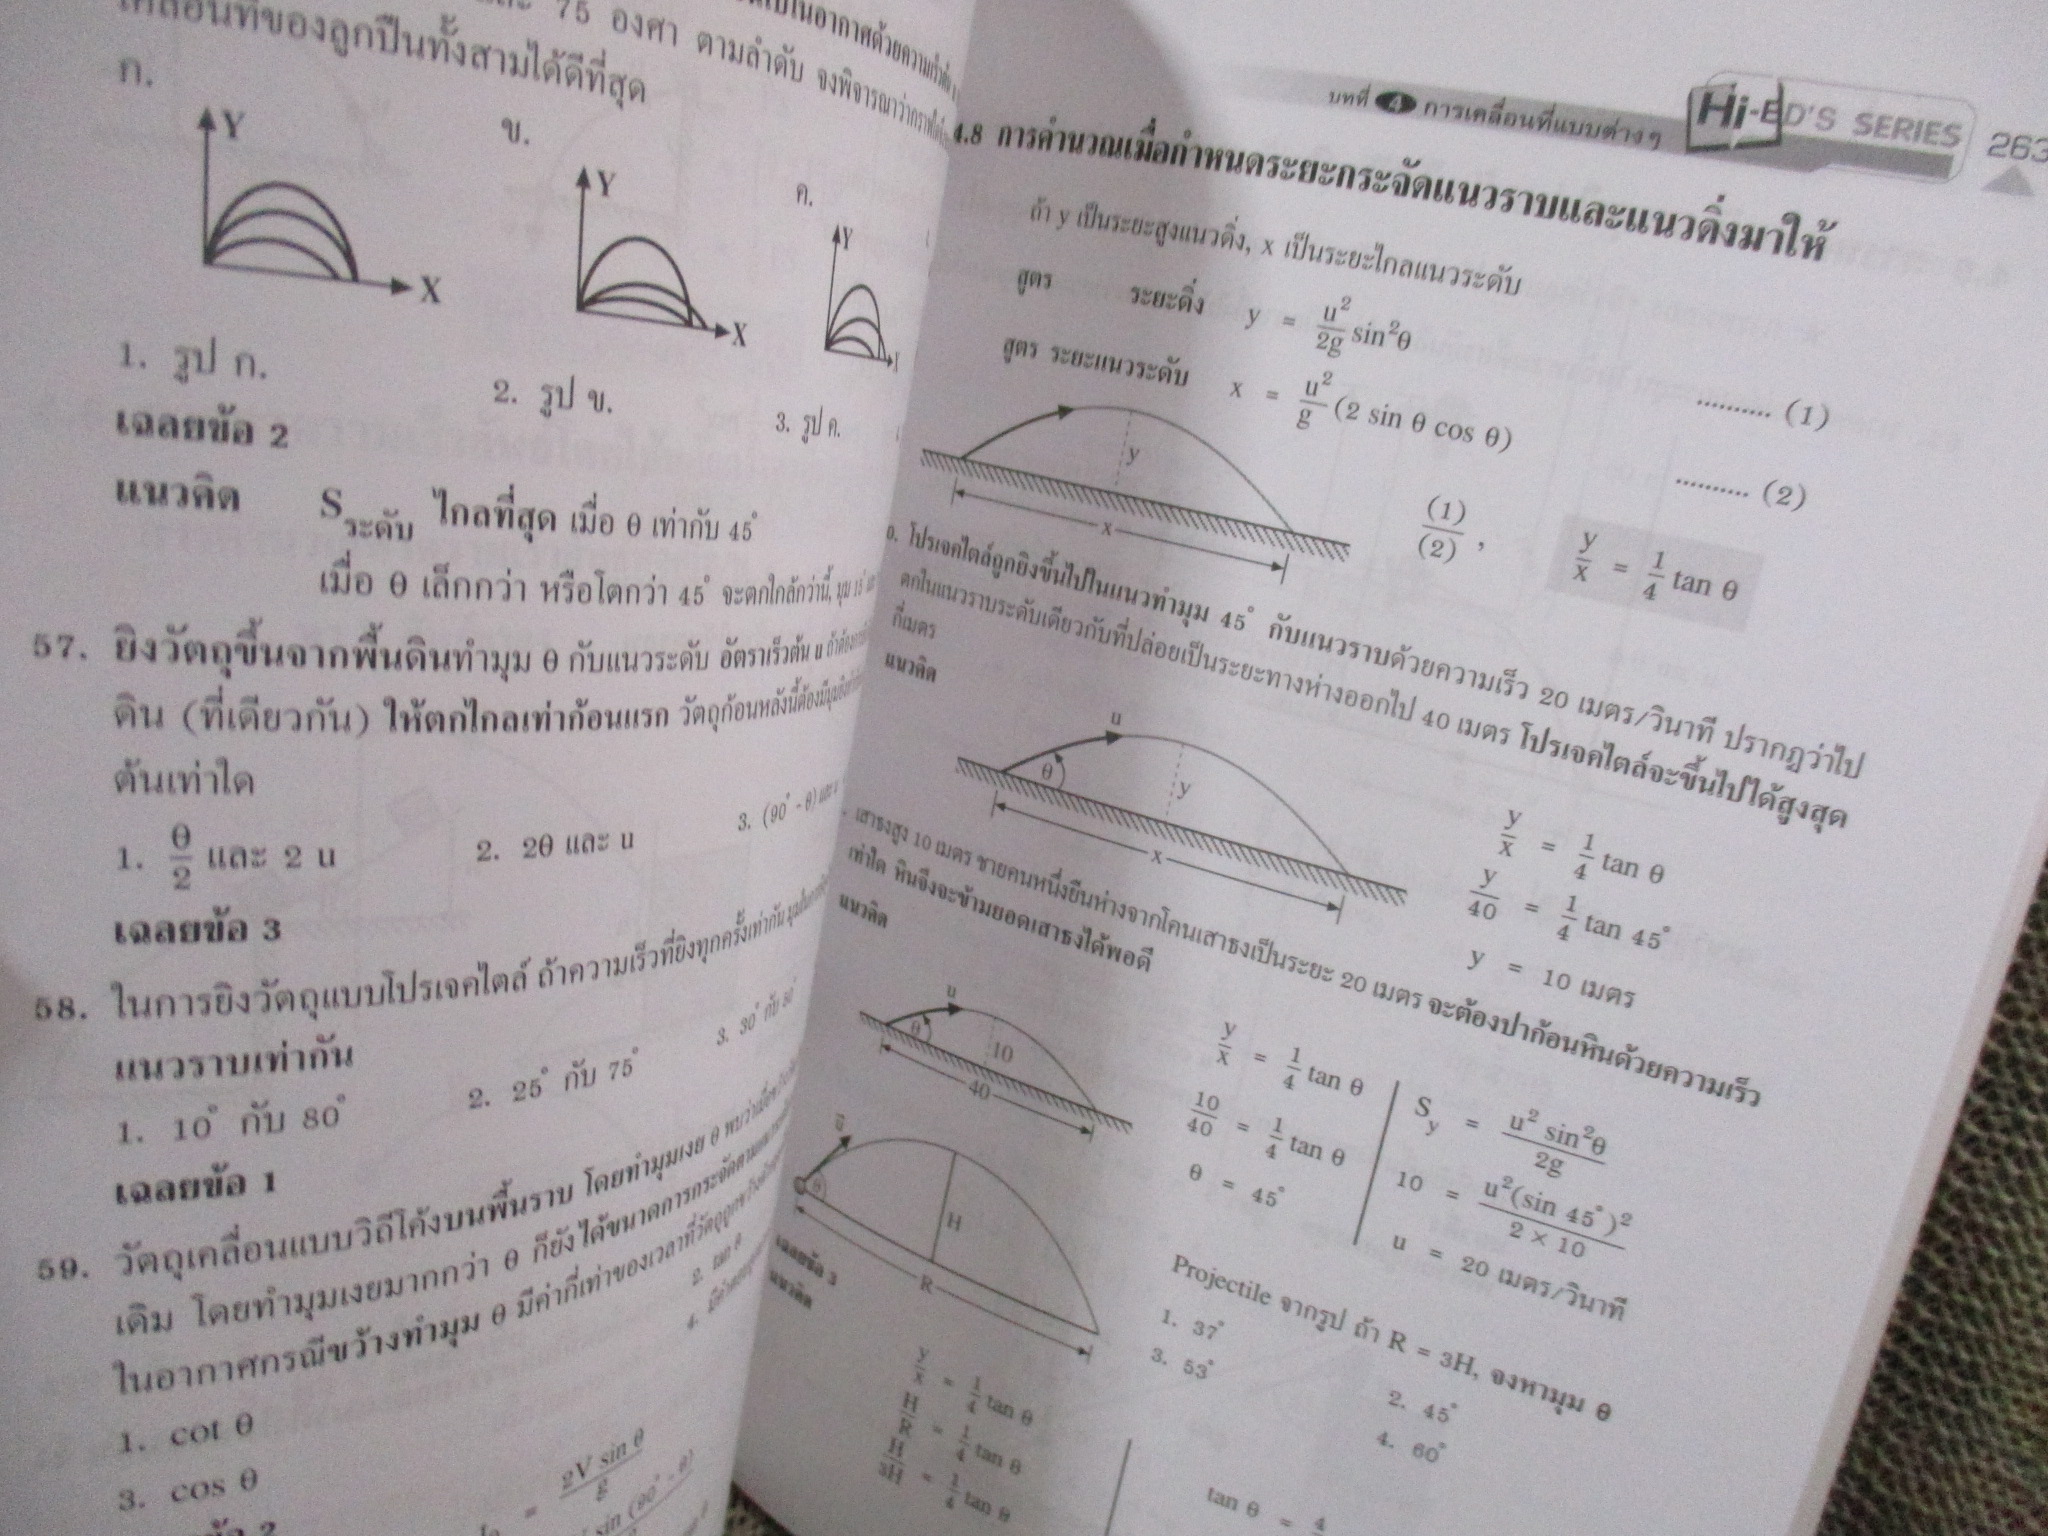 75 องศา ตามลำดับ จงพิจารณาว่ากราฟใด
เคลื่อนที่ของลูกปืนทั้งสามได้ดีที่สุด
ก.
ข.
ค.
Y
X
Y
X
Y
1. รูป ก.
2. รูป ข.
3. รูป ค.
เฉลยข้อ 2
แนวคิด S ระดับ ไกลที่สุด เมื่อ θ เท่ากับ 45°
เมื่อ θ เล็กกว่า หรือโตกว่า 45° จะตกใกล้กว่านี้, มุม 15°
57. ยิงวัตถุขึ้นจากพื้นดินทำมุม θ กับแนวระดับ อัตราเร็วต้น u ถ้าต้องการ
ดิน (ที่เดียวกัน) ให้ตกไกลเท่าก้อนแรก วัตถุก้อนหลังนี้ต้องมีมุม
ต้นเท่าใด
1. θ/2 และ 2 u
2. 2θ และ u
3. (90° - θ) และ u
เฉลยข้อ 3
58. ในการยิงวัตถุแบบโปรเจคไตล์ ถ้าความเร็วที่ยิงทุกครั้งเท่ากัน
แนวราบเท่ากัน
1. 10° กับ 80°
2. 25° กับ 75°
3. 30° กับ 50°
เฉลยข้อ 1
59. วัตถุเคลื่อนแบบวิถีโค้งบนพื้นราบ โดยทำมุมเงย θ พบว่าเมื่อ
เดิม โดยทำมุมเงยมากกว่า θ ก็ยังได้ขนาดการกระจัดตาม
ในอากาศกรณีขว้างทำมุม θ มีค่ากี่เท่าของเวลาที่วัตถุถูกขว้าง
1. cot θ
2. tan θ
3. cos θ
4.
= 2V sin θ / g
sin (90° - θ)
บทที่ 4 การเคลื่อนที่แบบต่างๆ
Hi-ED'S SERIES 263
4.8 การคำนวณเมื่อกำหนดระยะกระจัดแนวราบและแนวดิ่งมาให้
ถ้า y เป็นระยะสูงแนวดิ่ง, x เป็นระยะไกลแนวระดับ
สูตร ระยะดิ่ง y = u²/2g sin²θ .......... (1)
สูตร ระยะแนวระดับ x = u²/g (2 sin θ cos θ) .......... (2)
y
x
(1)/(2) , y/x = 1/4 tan θ
โปรเจคไตล์ถูกยิงขึ้นไปในแนวทำมุม 45° กับแนวราบด้วยความเร็ว 20 เมตร/วินาที ปรากฏว่าไป
ตกในแนวราบระดับเดียวกับที่ปล่อยเป็นระยะทางห่างออกไป 40 เมตร โปรเจคไตล์จะขึ้นไปได้สูงสุด
กี่เมตร
แนวคิด
u
θ
y
x
y/x = 1/4 tan θ
y/40 = 1/4 tan 45°
y = 10 เมตร
เสาธงสูง 10 เมตร ชายคนหนึ่งยืนห่างจากโคนเสาธงเป็นระยะ 20 เมตร จะต้องปาก้อนหินด้วยความเร็ว
เท่าใด หินจึงจะข้ามยอดเสาธงได้พอดี
แนวคิด
u
θ
10
40
y/x = 1/4 tan θ
10/40 = 1/4 tan θ
θ = 45°
Sy = u² sin²θ / 2g
10 = u²(sin 45°)² / 2 × 10
u = 20 เมตร/วินาที
u
θ
H
R
Projectile จากรูป ถ้า R = 3H, จงหามุม θ
1. 37°
2. 45°
3. 53°
4. 60°
เฉลยข้อ 3
แนวคิด
y/x = 1/4 tan θ
H/R = 1/4 tan θ
H/3H = 1/4 tan θ
tan θ = 4